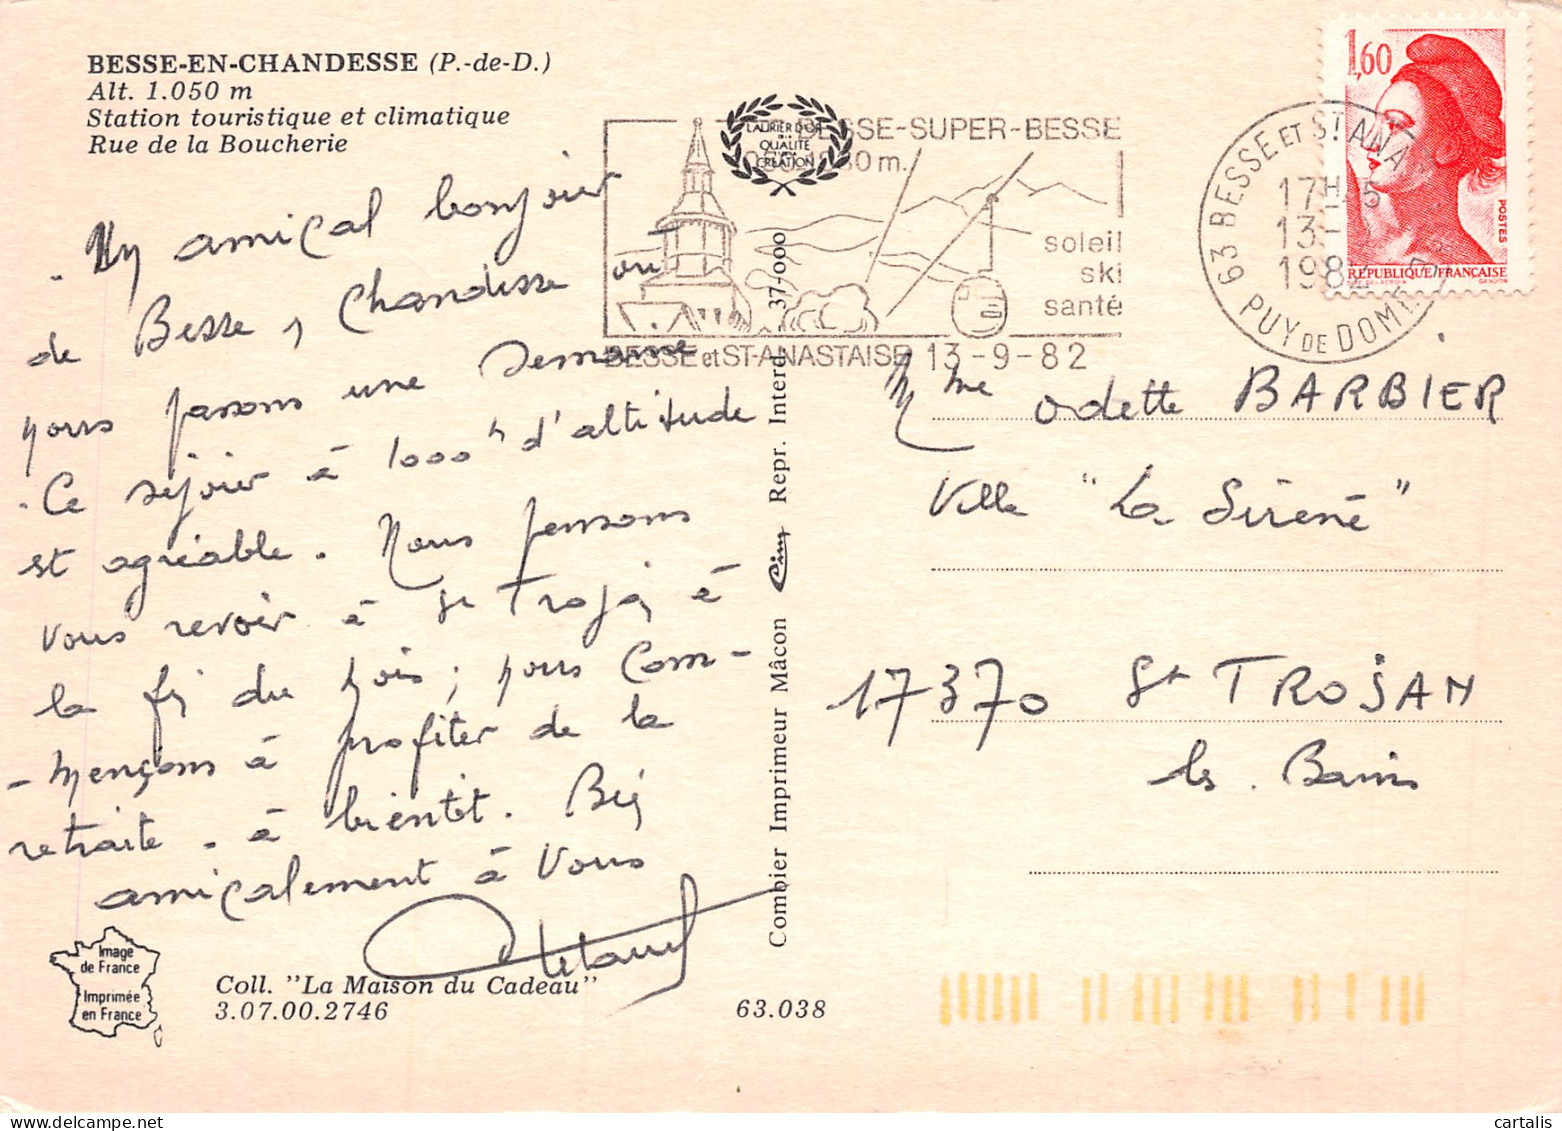 BESSE-EN-CHANDESSE (P.-de-D.)
Alt. 1.050 m
Station touristique et climatique
Rue de la Boucherie
- Un amical bonjour
de Besse, Chandesse où
nous passons une semaine
. Ce séjour à 1000 m d'altitude
est agréable. Nous pensons
vous revoir à St Trojan à
la fin du mois ; nous com-
- mençons à profiter de la
retraite - à bientôt. Bien
amicalement à vous
Image
de France
Imprimée
en France
Coll. "La Maison du Cadeau"
3.07.00.2746
63.038
Combier Imprimeur Mâcon Cim Repr. Interd. 37-000
LAURIER D'OR
DE LA
QUALITÉ
CRÉATION
BESSE-SUPER-BESSE
m.
soleil
ski
santé
BESSE et ST-ANASTAISE 13-9-82
63 BESSE ET ST ANA
17H45
13-
1982
PUY DE DOME
1,60
POSTES
RÉPUBLIQUE FRANÇAISE
DELACROIX GANDON
Mme Odette BARBIER
Villa "La Sirène"
17370 St TROJAN
les. Bains
cartalis